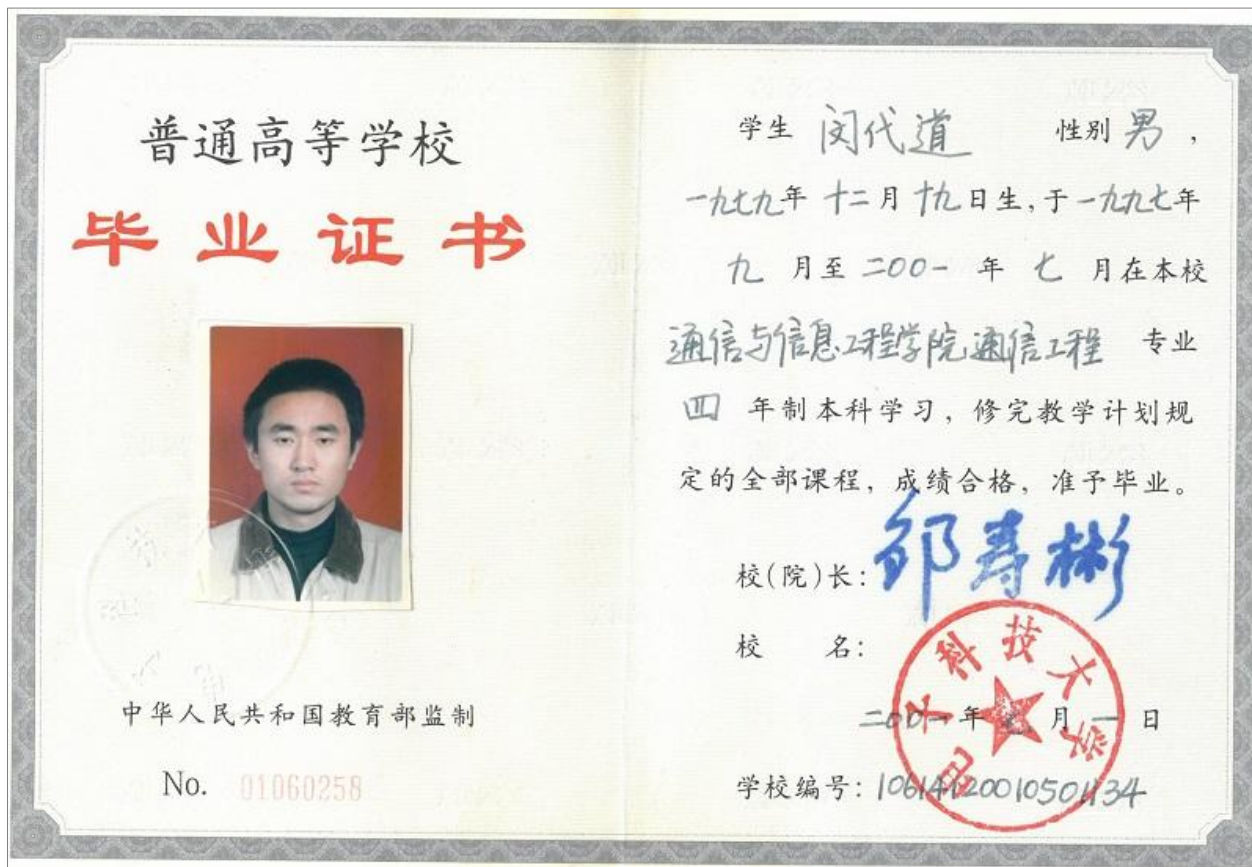 普通高等学校
毕业证书
中华人民共和国教育部监制
No. 01060258
学生 闵代道 性别 男，
一九七九年 十二月 十九日生，于一九九七年
九 月至 二00一 年 七 月在本校
通信与信息工程学院通信工程 专业
四 年制本科学习，修完教学计划规
定的全部课程，成绩合格，准予毕业。
校(院)长：邹寿彬
校 名：
电子科技大学
二00一年 七 月 一 日
学校编号：10614120010501134